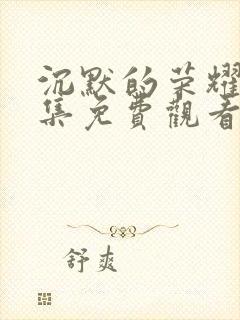 沉默的荣耀
集免費觀看
舒爽